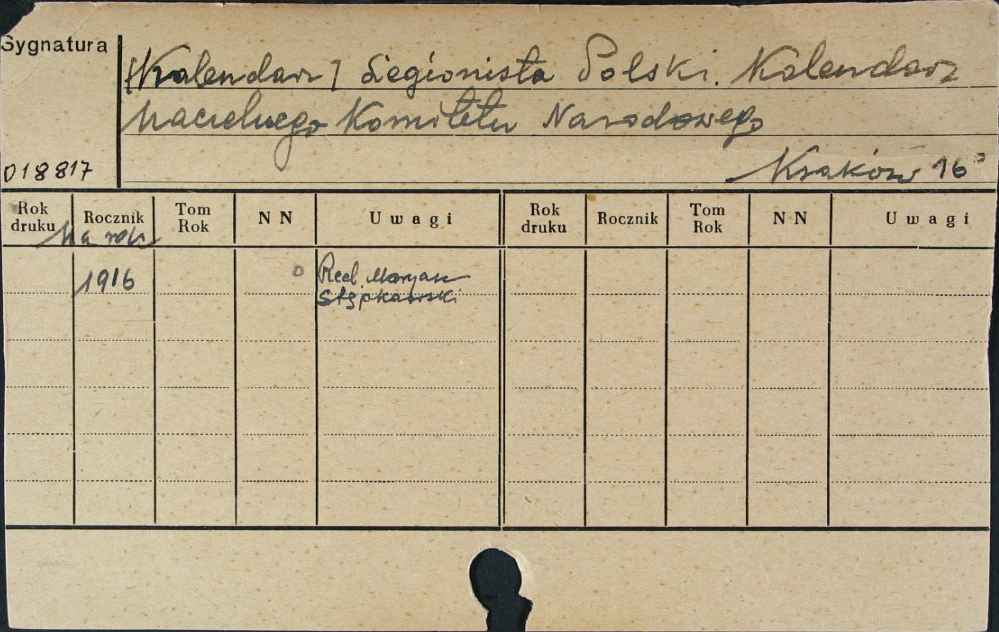 Sygnatura
[Kalendarz] Legionista Polski. Kalendarz
Naczelnego Komitetu Narodowego
Kraków 16°
018817
Rok druku Rocznik Tom Rok N N Uwagi Rok druku Rocznik Tom Rok N N Uwagi
Na rok
1916 Red. Maryan
Stępkowski